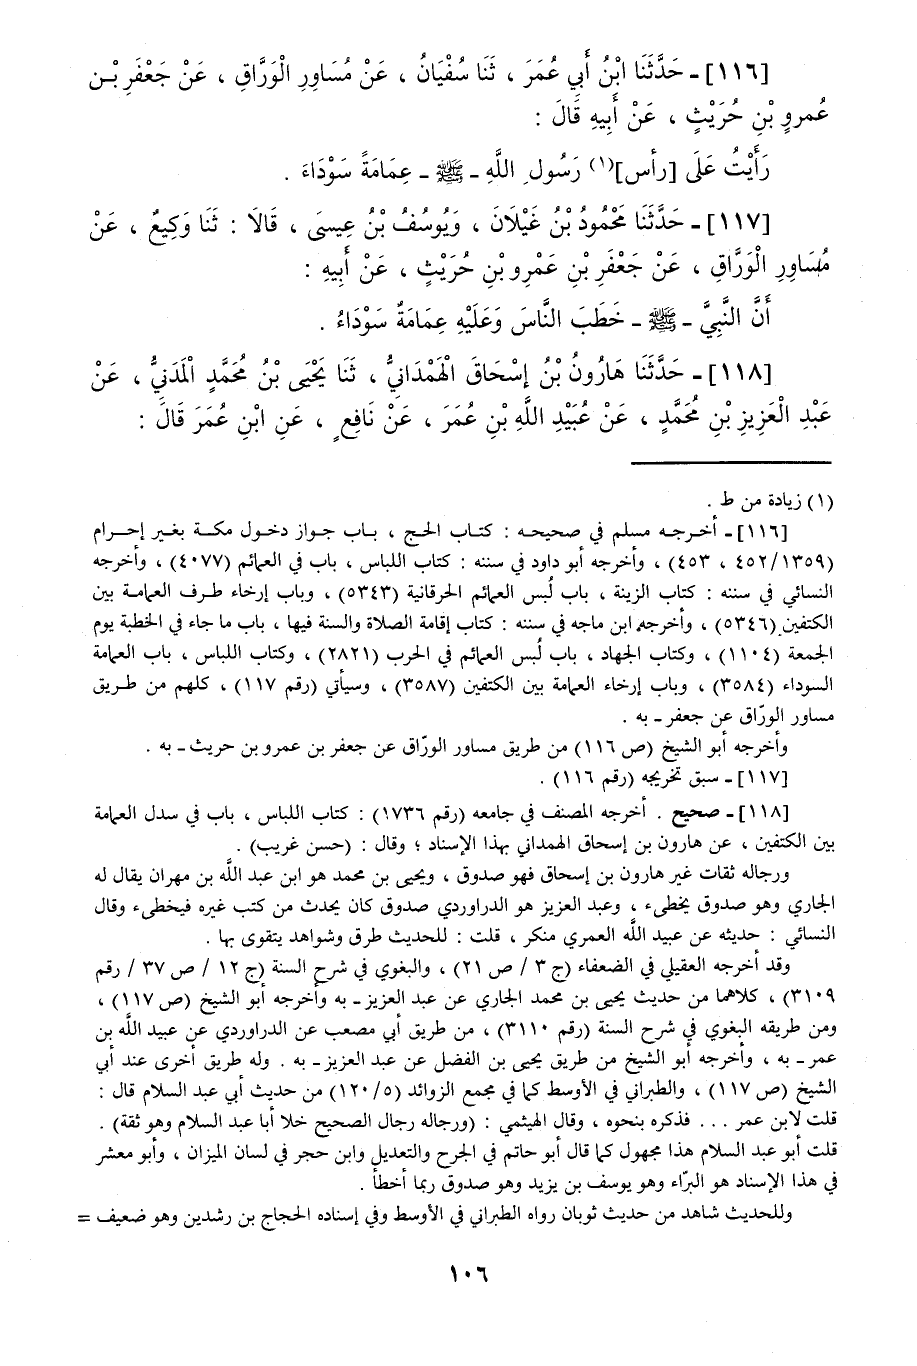 [١١٦] ـ حَدَّثَنَا ابْنُ أَبِي عُمَرَ ، ثَنَا سُفْيَانُ ، عَنْ مُسَاوِرِ الْوَرَّاقِ ، عَنْ جَعْفَرِ بْـن
عُمروِ بْنِ حُرَيْثٍ ، عَنْ أَبِيهِ قَالَ :
رَأَيْتُ عَلَى [رأس](١) رَسُولِ اللَّهِ ـ ﷺ ـ عِمَامَةً سَوْدَاءَ .
[١١٧] ـ حَدَّثَنَا مَحْمُودُ بْنُ غَيْلَانَ ، وَيُوسُفُ بْنُ عِيسَى ، قَالَا : ثَنَا وَكِيعٌ ، عَنْ
مُسَاوِرِ الْوَرَّاقِ ، عَنْ جَعْفَرِ بْنِ عَمْرِو بْنِ حُرَيْثٍ ، عَنْ أَبِيهِ :
أَنَّ النَّبِيَّ ـ ﷺ ـ خَطَبَ النَّاسَ وَعَلَيْهِ عِمَامَةٌ سَوْدَاءُ .
[١١٨] ـ حَدَّثَنَا هَارُونُ بْنُ إِسْحَاقَ الْهَمْدَانِيُّ ، ثَنَا يَحْيَى بْنُ مُحَمَّدٍ الْمَدَنِيُّ ، عَنْ
عَبْدِ الْعَزِيزِ بْنِ مُحَمَّدٍ ، عَنْ عُبَيْدِ اللَّهِ بْنِ عُمَرَ ، عَنْ نَافِعٍ ، عَنِ ابْنِ عُمَرَ قَالَ :
(١) زيادة من ط .
[١١٦] ـ أخرجه مسلم في صحيحه : كتاب الحج ، باب جواز دخول مكة بغير إحرام
(٤٥٢/١٣٥٩ ، ٤٥٣) ، وأخرجه أبو داود في سننه : كتاب اللباس ، باب في العمائم (٤٠٧٧) ، وأخرجه
النسائي في سننه : كتاب الزينة ، باب لُبس العمائم الحرقانية (٥٣٤٣) ، وباب إرخاء طرف العمامة بين
الكتفين (٥٣٤٦) ، وأخرجه ابن ماجه في سننه : كتاب إقامة الصلاة والسنة فيها ، باب ما جاء في الخطبة يوم
الجمعة (١١٠٤) ، وكتاب الجهاد ، باب لُبس العمائم في الحرب (٢٨٢١) ، وكتاب اللباس ، باب العمامة
السوداء (٣٥٨٤) ، وباب إرخاء العمامة بين الكتفين (٣٥٨٧) ، وسيأتي (رقم ١١٧) ، كلهم من طريق
مساور الورّاق عن جعفر ـ به .
وأخرجه أبو الشيخ (ص ١١٦) من طريق مساور الورّاق عن جعفر بن عمرو بن حريث ـ به .
[١١٧] ـ سبق تخريجه (رقم ١١٦) .
[١١٨] ـ صحيح . أخرجه المصنف في جامعه (رقم ١٧٣٦) : كتاب اللباس ، باب في سدل العمامة
بين الكتفين ، عن هارون بن إسحاق الهمداني بهذا الإسناد ؛ وقال : (حسن غريب) .
ورجاله ثقات غير هارون بن إسحاق فهو صدوق ، ويحيى بن محمد هو ابن عبد اللَّه بن مهران يقال له
الجاري وهو صدوق يخطىء ، وعبد العزيز هو الدراوردي صدوق كان يحدث من كتب غيره فيخطىء وقال
النسائي : حديثه عن عبيد اللَّه العمري منكر ، قلت : للحديث طرق وشواهد يتقوى بها .
وقد أخرجه العقيلي في الضعفاء (ج ٣ / ص ٢١) ، والبغوي في شرح السنة (ج ١٢ / ص ٣٧ / رقم
٣١٠٩) ، كلاهما من حديث يحيى بن محمد الجاري عن عبد العزيز ـ به وأخرجه أبو الشيخ (ص ١١٧) ،
ومن طريقه البغوي في شرح السنة (رقم ٣١١٠) ، من طريق أبي مصعب عن الدراوردي عن عبيد اللَّه بن
عمر ـ به ، وأخرجه أبو الشيخ من طريق يحيى بن الفضل عن عبد العزيز ـ به . وله طريق أخرى عند أبي
الشيخ (ص ١١٧) ، والطبراني في الأوسط كما في مجمع الزوائد (٥/ ١٢٠) من حديث أبي عبد السلام قال :
قلت لابن عمر ... فذكره بنحوه ، وقال الهيثمي : (ورجاله رجال الصحيح خلا أبا عبد السلام وهو ثقة) .
قلت أبو عبد السلام هذا مجهول كما قال أبو حاتم في الجرح والتعديل وابن حجر في لسان الميزان ، وأبو معشر
في هذا الإسناد هو البرّاء وهو يوسف بن يزيد وهو صدوق ربما أخطأ .
وللحديث شاهد من حديث ثوبان رواه الطبراني في الأوسط وفي إسناده الحجاج بن رشدين وهو ضعيف =
١٠٦